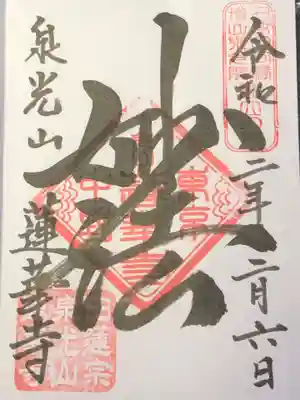 令和二年二月六日
妙法
泉光山 蓮華寺
東京
日蓮宗
泉光山